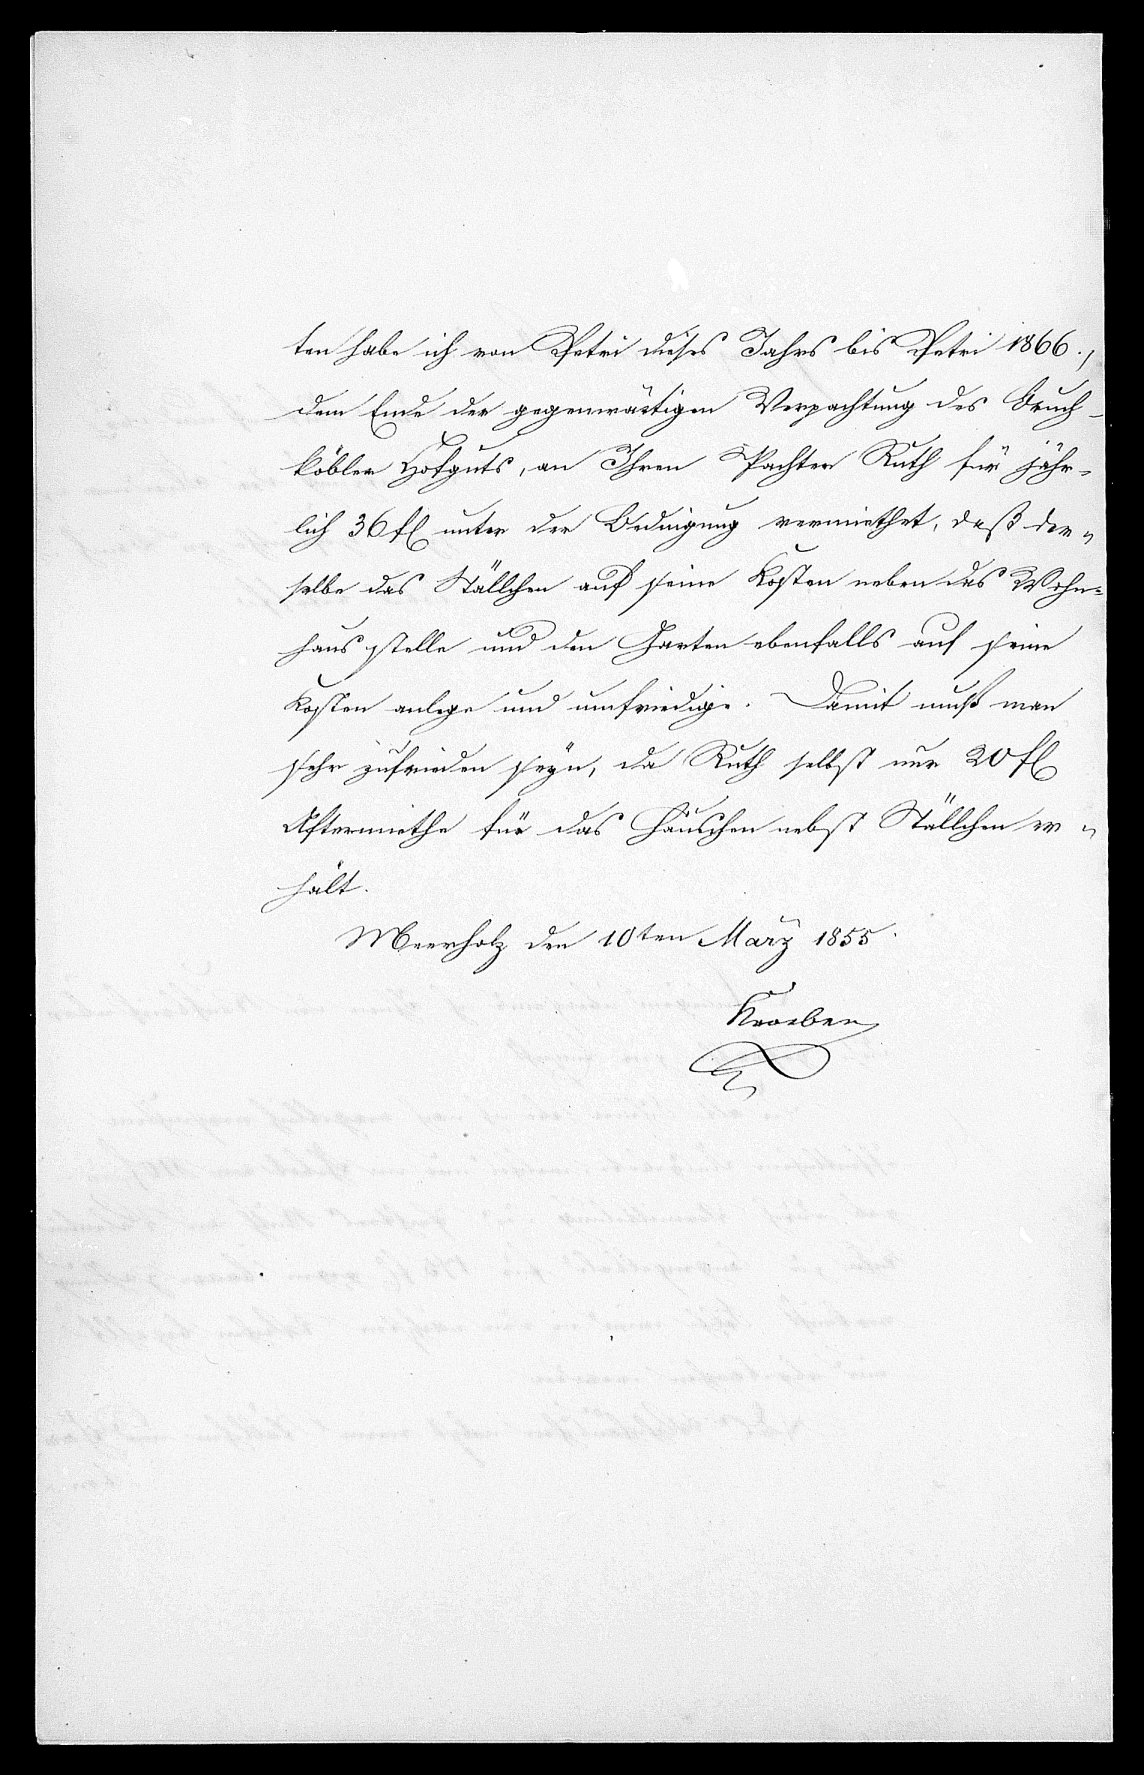 ten habe ich von Petri dieses Jahrs bis Petri 1866.,
dem Ende der gegenwärtigen Verpachtung des Bruch-
köbler Hofguts, an Ihren Pachter Ruth für jähr-
lich 36 fl unter der Bedingung vermiethet, daß der-
selbe das Ställchen auf seine Kosten neben das Wohn-
haus stelle und den Garten ebenfalls auf seine
Kosten anlege und umfriedige. Damit muß man
sehr zufrieden seyn, da Ruth selbst nur 20 fl
Aftermiethe für das Häuschen nebst Ställchen er-
hält.
Meerholz den 10ten März 1855.
Kroeber